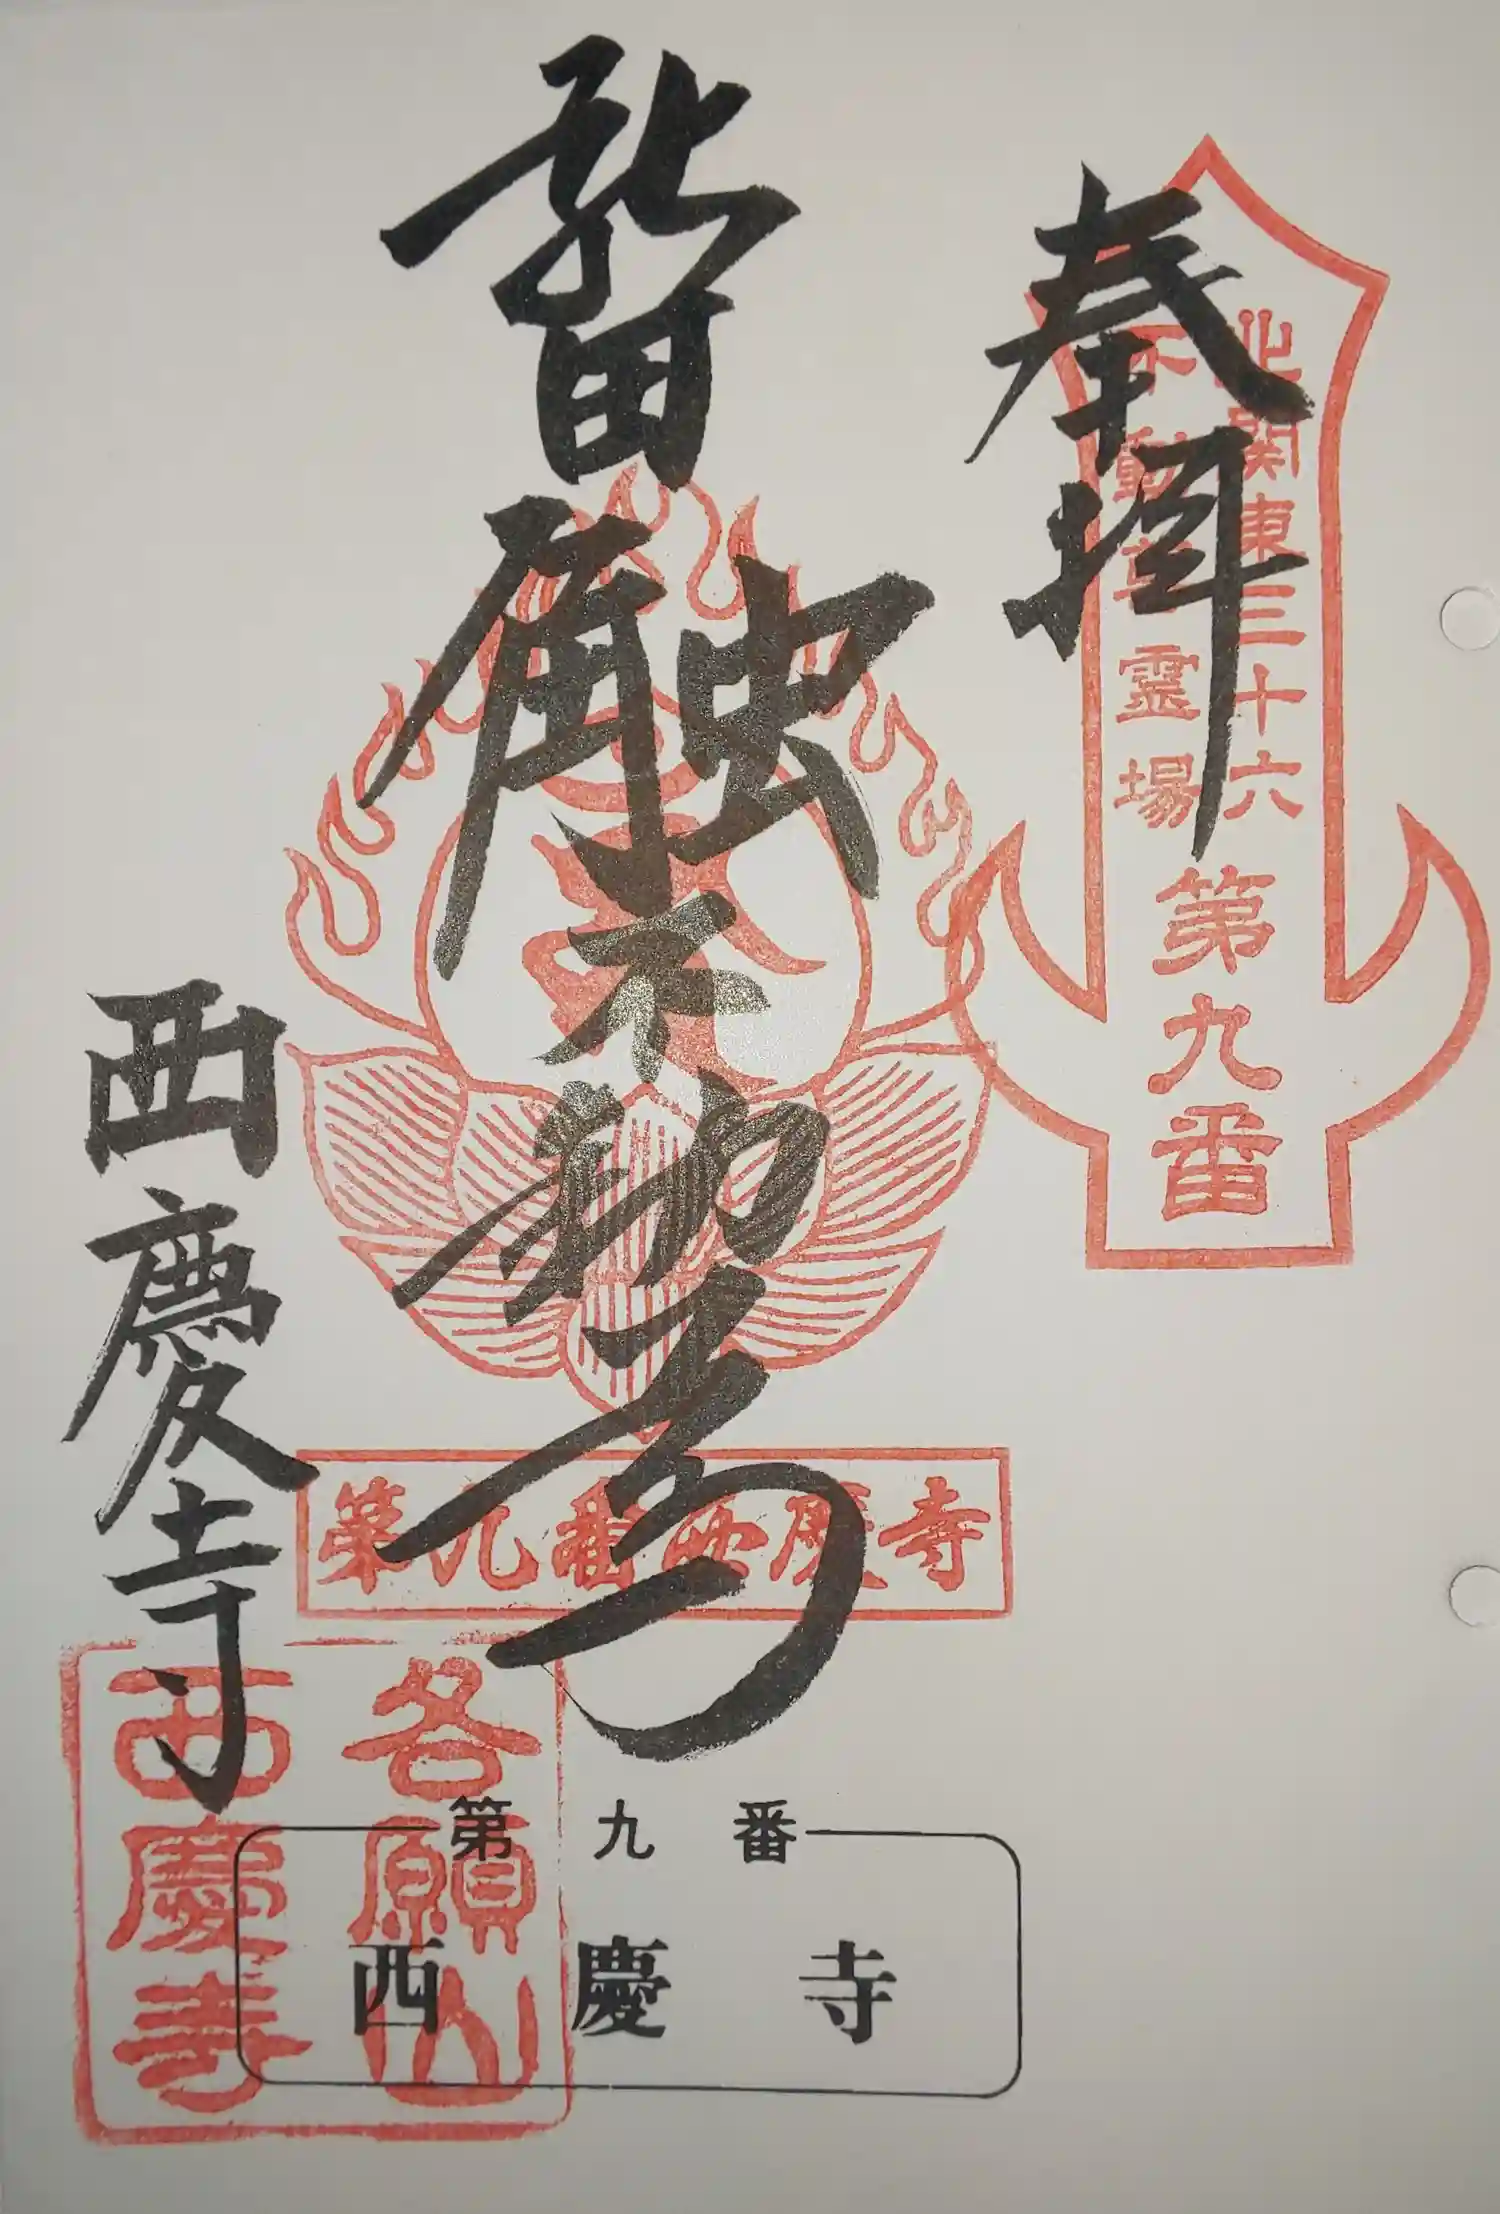 奉拝
北関東三十六
不動尊霊場
第九番
西慶寺
第九番西慶寺
各願山
西慶寺
第九番
西慶寺